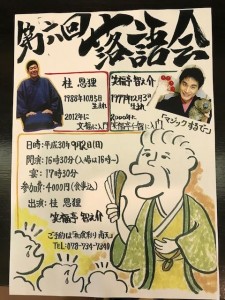 第六回 落語会
桂 恩狸
1988年10月5日
生まれ
2012年に
文福に入門
笑福亭 智之介
1977年12月3日
生まれ
2000年に
笑福亭仁智に入門
「マジックするで」
日時:平成30年9月2日(日)
開演:16時30分(入場は16時〜)
宴:17時30分
参加費:4000円(食事込)
出演:桂 恩狸
笑福亭 智之介
ご予約は